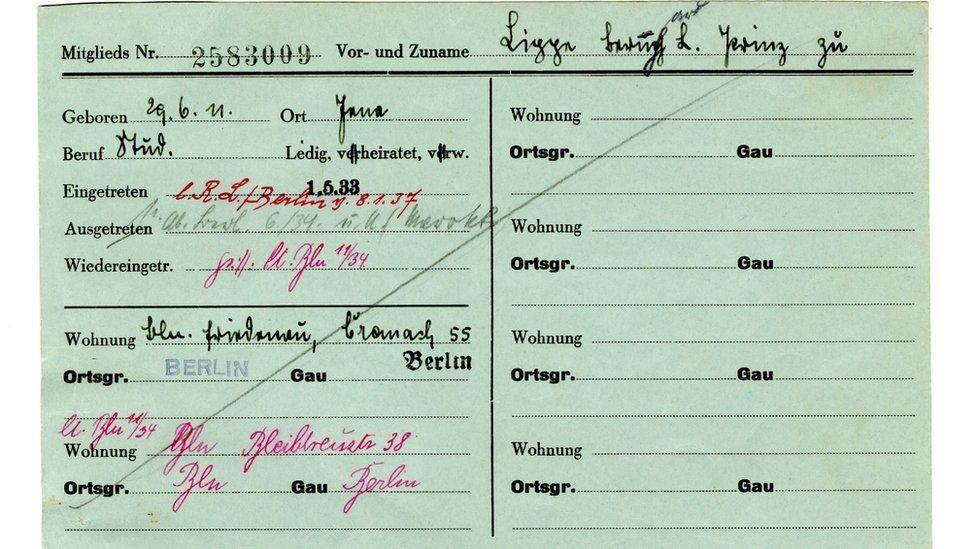 Mitglieds Nr. 2583009 Vor- und Zuname Lippe Bernh ard L. Prinz zu
Geboren 29.6.11. Ort Jena
Beruf Stud. Ledig, verheiratet, verw.
Eingetreten 1.5.33
/Berlin v. 8.1.37
Ausgetreten 6/34. u.
Wiedereingetr. lt. Bln 11/34
Wohnung Bln. Friedenau, Cranach 55
Ortsgr. BERLIN Gau Berlin
lt. Bln 11/34
Wohnung Bln Bleibtreustr 38
Ortsgr. Bln Gau Berlin
Wohnung
Ortsgr. Gau
Wohnung
Ortsgr. Gau
Wohnung
Ortsgr. Gau
Wohnung
Ortsgr. Gau